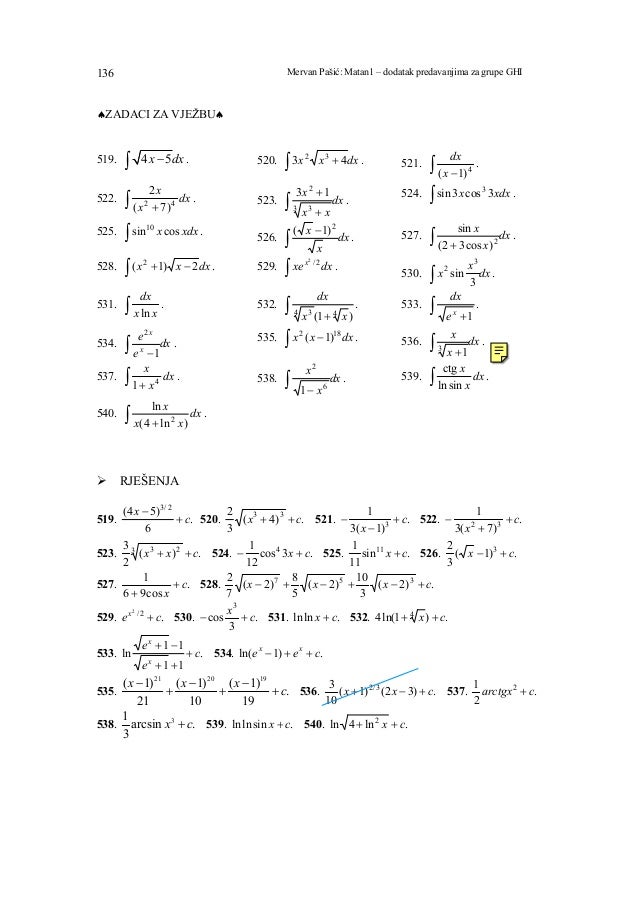 136 Mervan Pašić: Matan1 – dodatak predavanjima za grupe GHI
♠ZADACI ZA VJEŽBU♠
519. ∫ √(4x − 5) dx . 520. ∫ 3x² √(x³ + 4) dx . 521. ∫ dx/(x − 1)⁴ .
522. ∫ 2x/(x² + 7)⁴ dx . 523. ∫ (3x² + 1)/∛(x³ + x) dx . 524. ∫ sin 3x cos³ 3x dx .
525. ∫ sin¹⁰ x cos x dx . 526. ∫ (√x − 1)²/√x dx . 527. ∫ sin x/(2 + 3cos x)² dx .
528. ∫ (x² + 1) √(x − 2) dx . 529. ∫ x e^(x²/2) dx . 530. ∫ x² sin x³/3 dx .
531. ∫ dx/(x ln x) . 532. ∫ dx/(∜x³ (1 + ∜x)) . 533. ∫ dx/√(eˣ + 1) .
534. ∫ e²ˣ/(eˣ − 1) dx . 535. ∫ x² (x − 1)¹⁸ dx . 536. ∫ x/∛(x + 1) dx .
537. ∫ x/(1 + x⁴) dx . 538. ∫ x²/√(1 − x⁶) dx . 539. ∫ ctg x/ln sin x dx .
540. ∫ ln x/(x(4 + ln² x)) dx .
➢ RJEŠENJA
519. (4x − 5)^(3/2)/6 + c. 520. 2/3 √((x³ + 4)³) + c. 521. − 1/(3(x − 1)³) + c. 522. − 1/(3(x² + 7)³) + c.
523. 3/2 ∛((x³ + x)²) + c. 524. − 1/12 cos⁴ 3x + c. 525. 1/11 sin¹¹ x + c. 526. 2/3 (√x − 1)³ + c.
527. 1/(6 + 9cos x) + c. 528. 2/7 √((x − 2)⁷) + 8/5 √((x − 2)⁵) + 10/3 √((x − 2)³) + c.
529. e^(x²/2) + c. 530. − cos x³/3 + c. 531. ln ln x + c. 532. 4 ln(1 + ∜x) + c.
533. ln (√(eˣ + 1) − 1)/(√(eˣ + 1) + 1) + c. 534. ln(eˣ − 1) + eˣ + c.
535. (x − 1)²¹/21 + (x − 1)²⁰/10 + (x − 1)¹⁹/19 + c. 536. 3/10 (x + 1)^(2/3) (2x − 3) + c. 537. 1/2 arctgx² + c.
538. 1/3 arcsin x³ + c. 539. ln ln sin x + c. 540. ln √(4 + ln² x) + c.